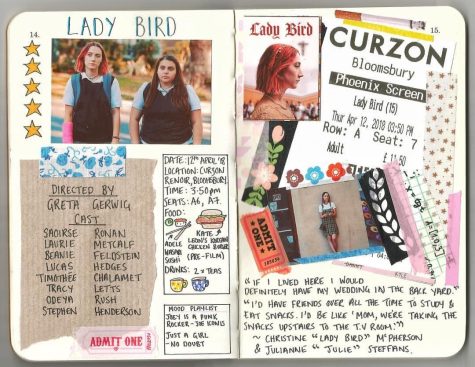 14.
LADY BIRD
DIRECTED BY
GRETA GERWIG
CAST
SAOIRSE RONAN
LAURIE METCALF
BEANIE FELDSTEIN
LUCAS HEDGES
TIMOTHÉE CHALAMET
TRACY LETTS
ODEYA RUSH
STEPHEN HENDERSON
ADMIT ONE
DATE: 12TH APRIL '18
LOCATION: CURZON
RENOIR, BLOOMSBURY.
TIME: 3:50pm
SEATS: A6, A7.
FOOD:
ADELE
WASABI
SUSHI
KATE
LEON'S
CHICKEN BURGER
(PRE-FILM)
DRINKS: 2 x TEAS
MOOD PLAYLIST
JOEY IS A PUNK
ROCKER - JOE ICONIS
JUST A GIRL
- NO DOUBT
15.
Lady Bird
CURZON
Bloomsbury
Phoenix Screen
Lady Bird (15)
Thur Apr 12, 2018 03:50 PM
Row: A Seat: 7
Adult
£ 11.50
ADMIT
ONE
"IF I LIVED HERE I WOULD
DEFINITELY HAVE MY WEDDING IN THE BACK YARD."
"I'D HAVE FRIENDS OVER ALL THE TIME TO STUDY &
EAT SNACKS. I'D BE LIKE 'MOM, WE'RE TAKING THE
SNACKS UPSTAIRS TO THE T.V ROOM.'"
~ CHRISTINE "LADY BIRD" McPHERSON
& JULIANNE "JULIE" STEFFANS.